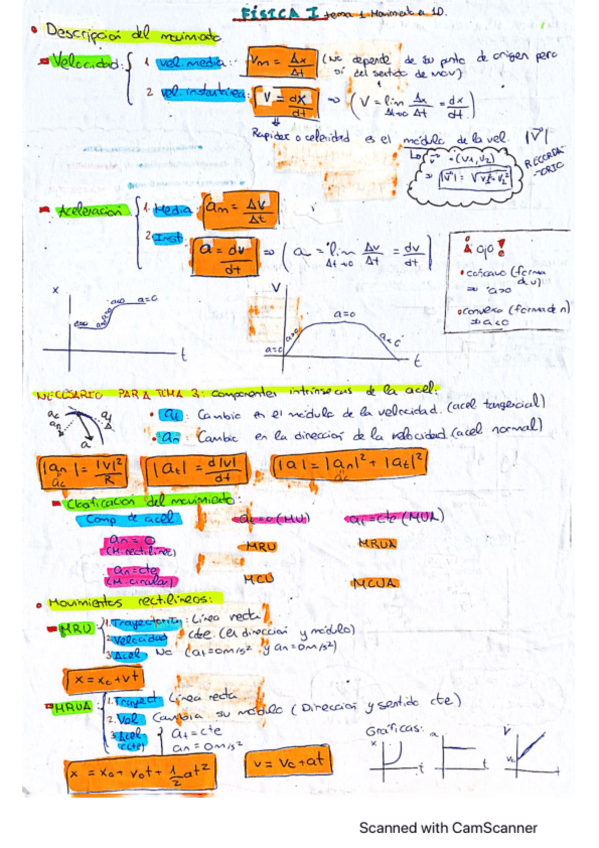 FÍSICA I tema 1 1D.
• Descripción del movimiento
Velocidad: 1 vel. media: Vm = Δx/Δt (No depende de su punto de origen pero
sí del sentido de mov)
2 vel. instantánea: V = dx/dt ⇒ (V = lim Δt→0 Δx/Δt = dx/dt)
Rapidez o celeridad es el módulo de la vel. |v⃗|
v⃗ = (v1, v2)
RECORDA-
TORIO
Aceleración 1. Media: am = Δv/Δt
2. Inst: a = dv/dt ⇒ (a = lim Δt→0 Δv/Δt = dv/dt)
¡OJO!
• cóncavo (forma
de u)
⇒ a>0
• convexo (forma de n)
⇒ a<0
x
a=0
t
v
a=0
a>0
a<0
t
NECESARIO PARA TEMA 3: componentes intrínsecas de la acel:
• at: Cambio en el módulo de la velocidad. (acel tangencial)
• an: Cambio en la dirección de la velocidad. (acel normal)
ac
an
at
a
|an| = |v|²/R
ac
|at| = d|v|/dt
|a| = |an|² + |at|²
ac
• Clasificación del movimiento:
Comp de acel. at = 0 (MU) at = cte (MUA)
an = 0
(M. rectilíneo)
MRU MRUA
an = cte
(M. circular)
MCU MCUA
• Movimientos rectilíneos:
MRU: 1. Trayectoria: Línea recta
2. Velocidad cte. (en dirección y módulo)
3. Acel. No (at = 0m/s² y an = 0m/s²)
x = x0 + vt
MRUA: 1. Trayect Línea recta
2. Vel Cambia su módulo (Dirección y sentido cte)
3. Acel (cte) at = cte
an = 0m/s²
Gráficas:
x t a t v v0 t
x = x0 + v0t + 1/2 at²
v = v0 + at
Scanned with CamScanner